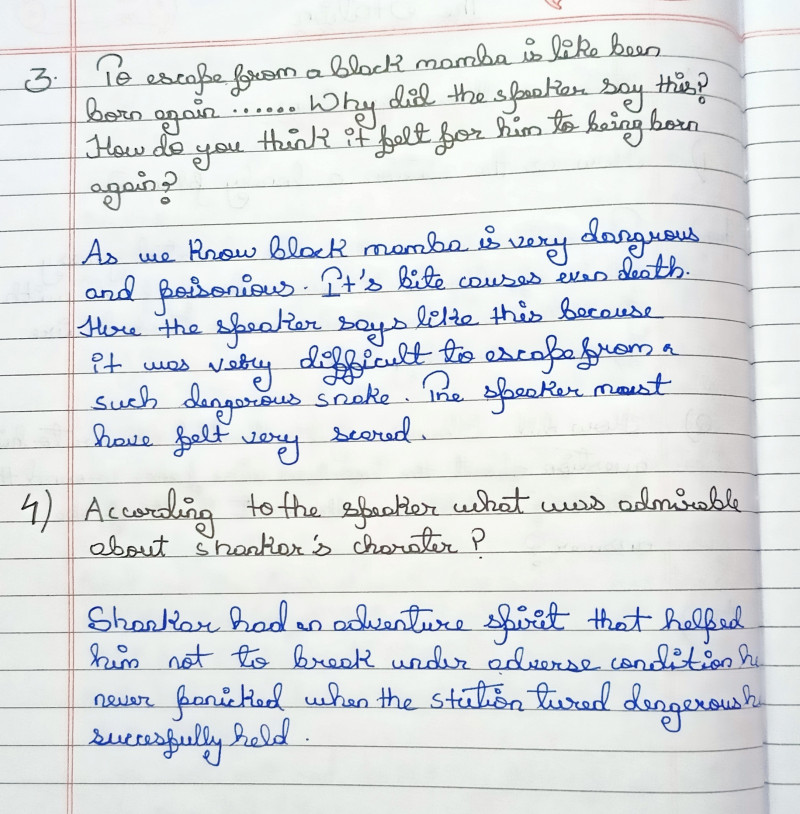 3. To escape from a black mamba is like been
born again ...... Why did the speaker say this?
How do you think it felt for him to being born
again?
As we know black mamba is very danguous
and poisonious. It's bite causes even death.
Here the speaker says like this because
it was very difficult to escape from a
such dengerous snake. The speaker must
have felt very scared.
4) According to the speaker what was admirable
about shankar's charater?
Shankar had an adventure spirit that helped
him not to break under adverse condition he
never panicked when the stution tured dengerous h
succesfully held.